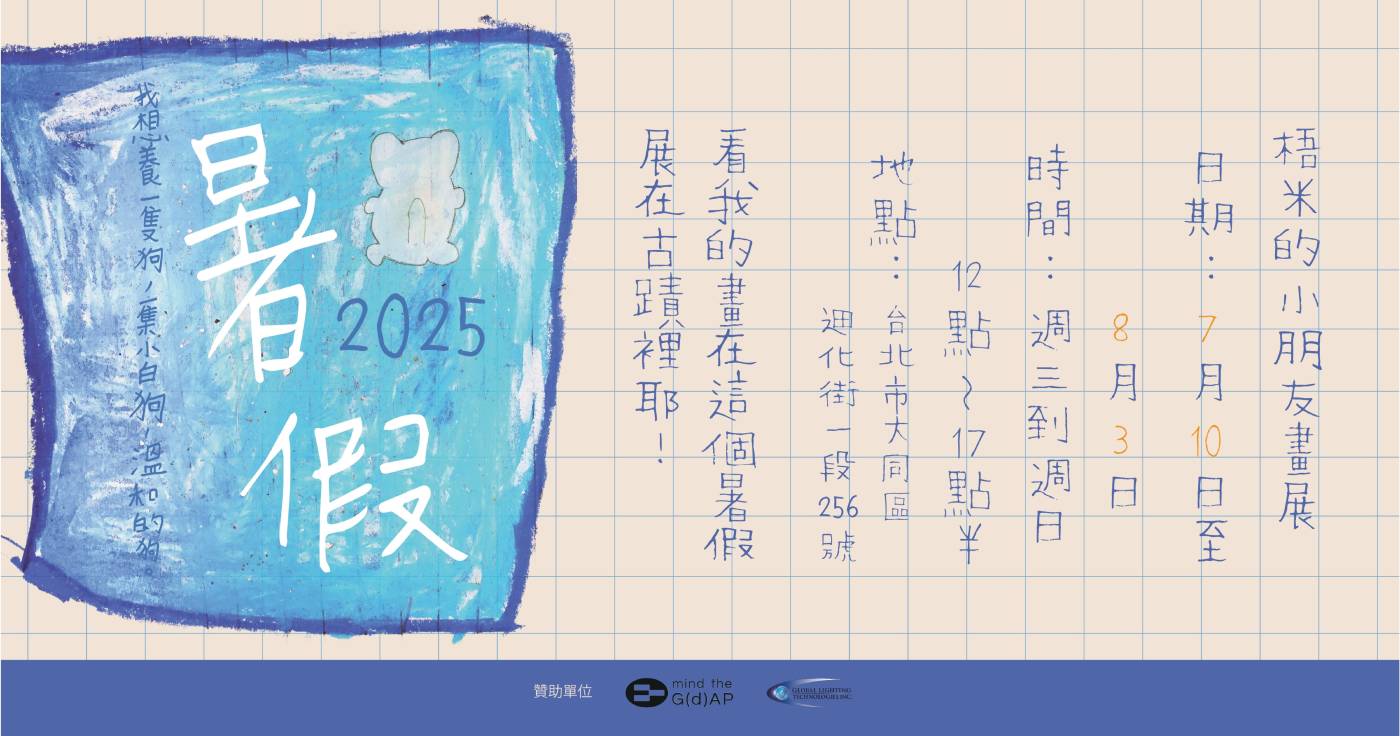 梧米的小朋友畫展
日期：7月10日至
8月3日
時間：週三到週日
12點~17點半
地點：台北市大同區
迪化街一段256號
看我的畫在這個暑假
展在古蹟裡耶！
暑假
2025
我想養一隻狗，一隻小白狗，溫和的狗。
贊助單位
mind the
G(d)AP
GLOBAL LIGHTING
TECHNOLOGIES INC.